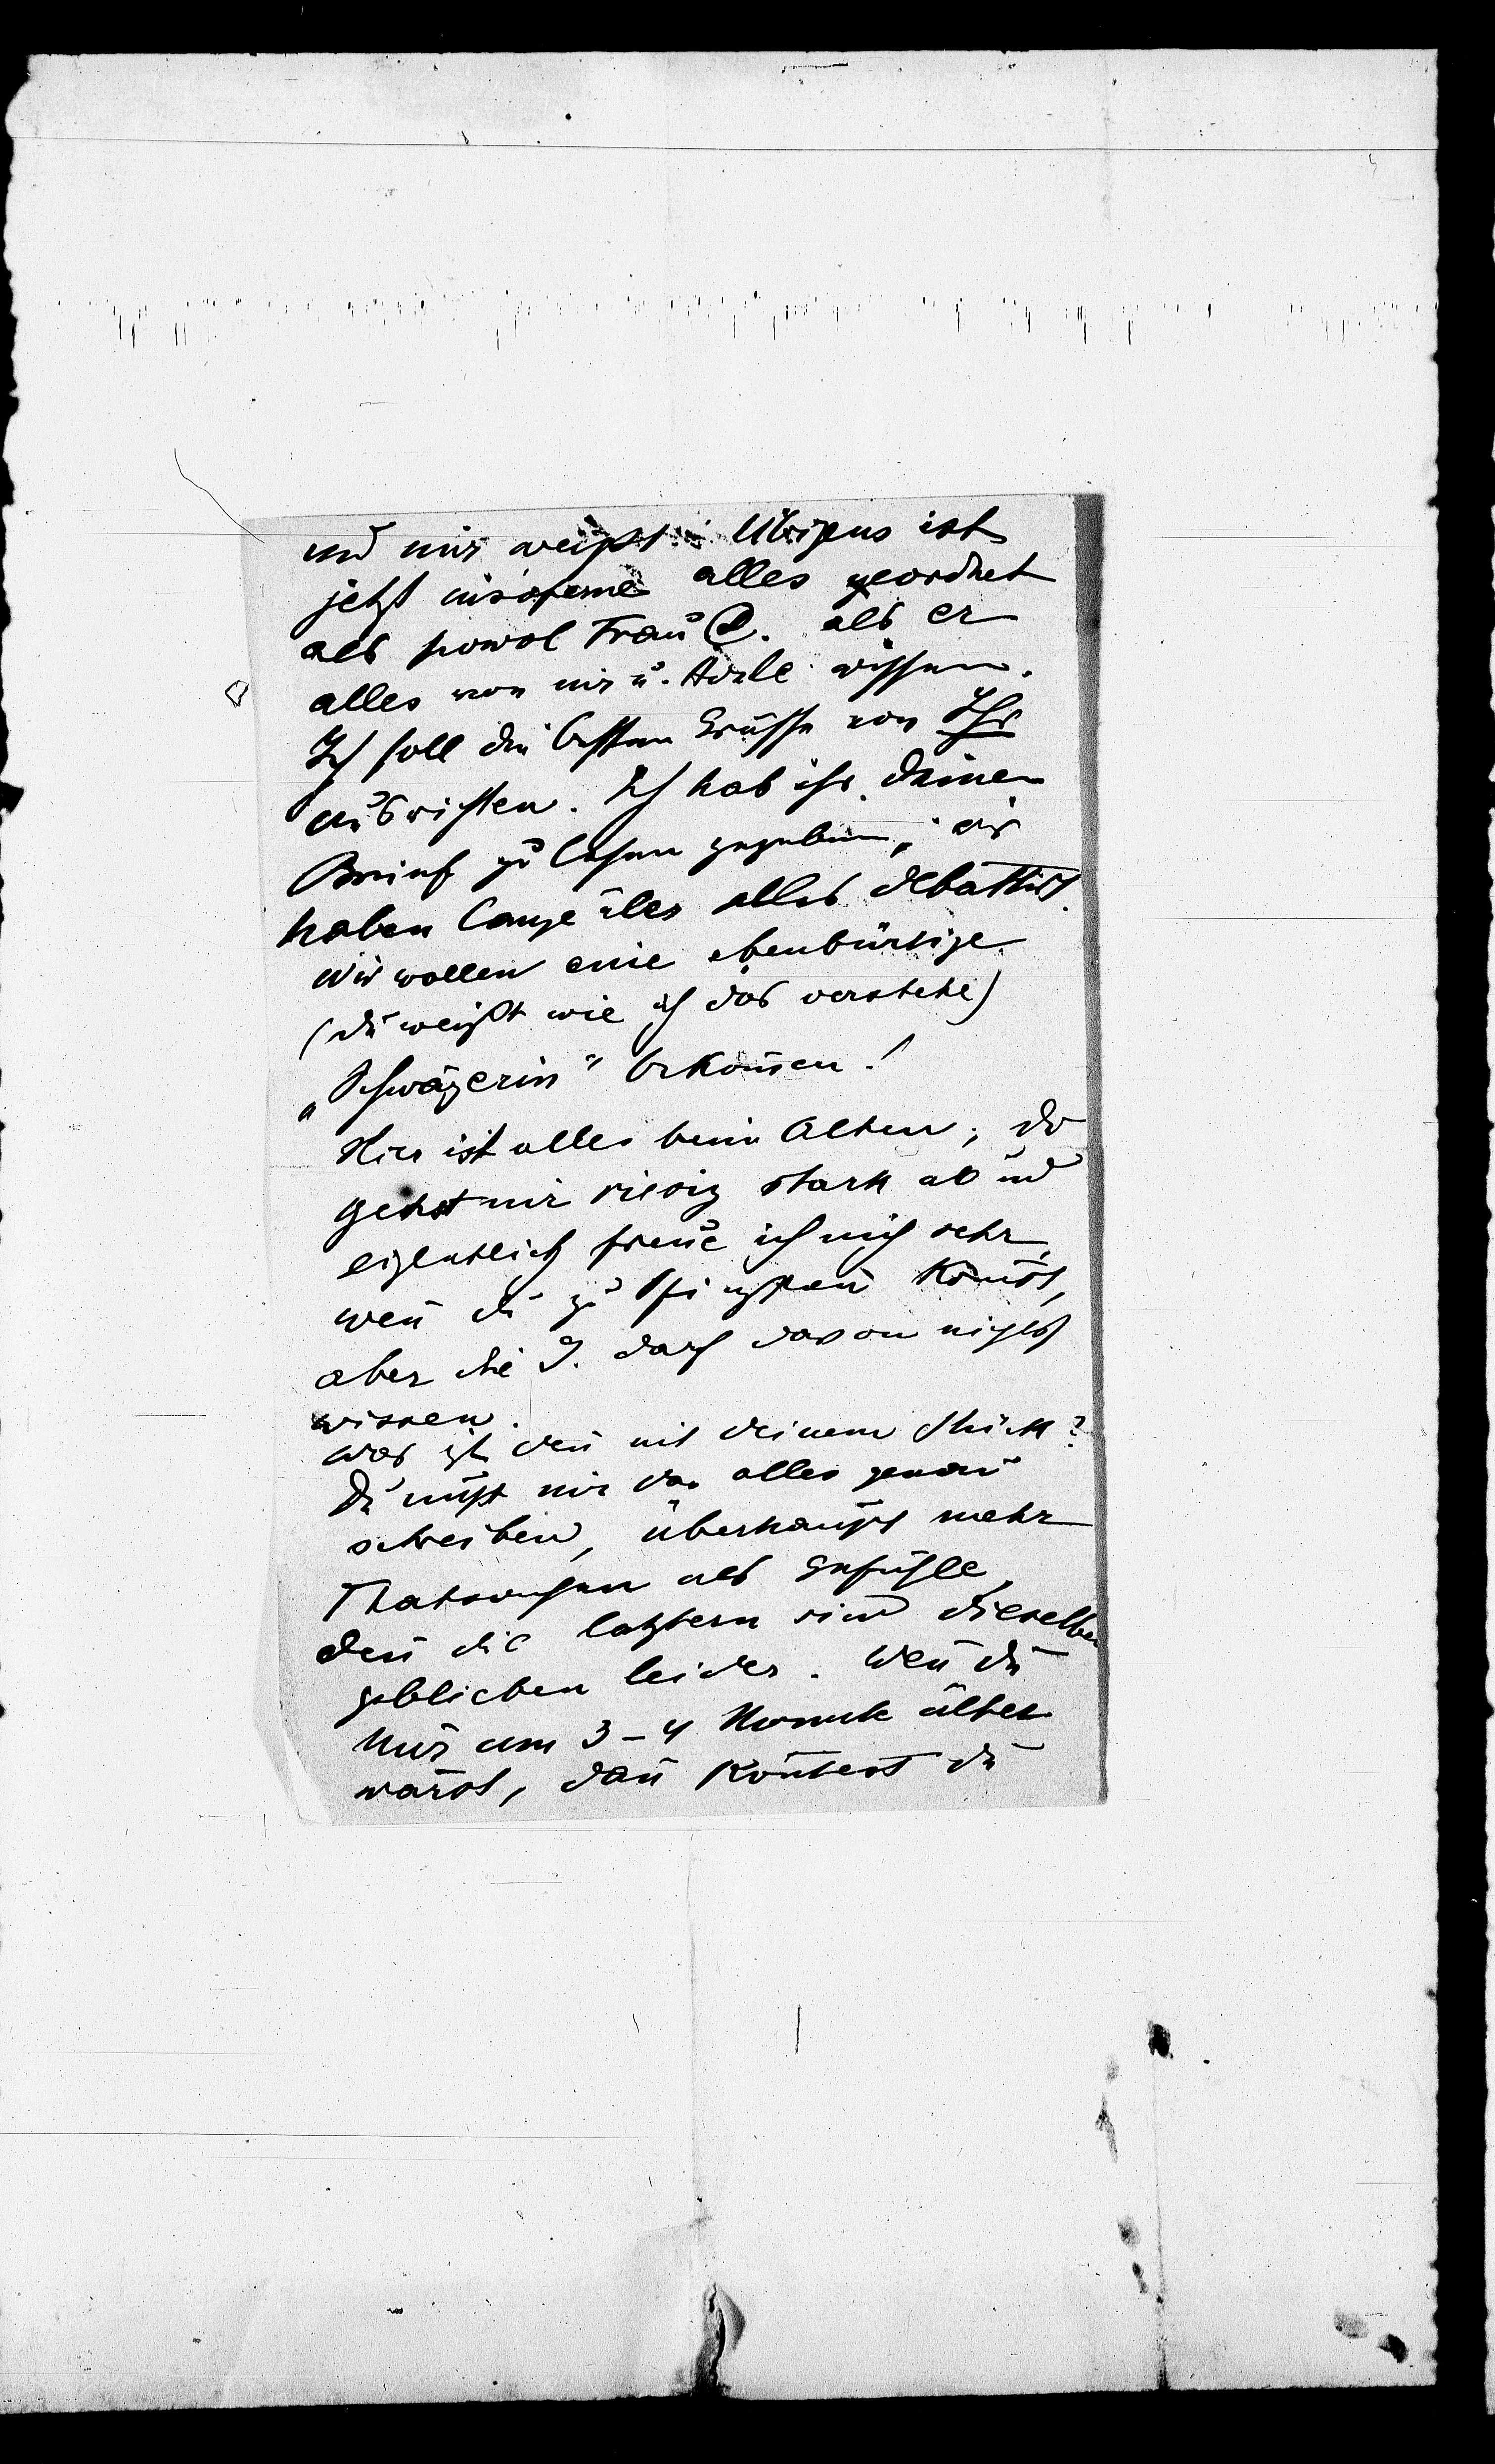 und mir weißt. Übrigens ist
jetzt insoferne alles geordnet
als sowol Frau D. als er
alles von mir u. Adele wissen.
Ich soll die besten Grüsse von Ihr
ausrichten. Ich hab ihr deinen
Brief zu lesen gegeben, wir
haben lange über alles debattirt.
Wir wollen eine ebenbürtige
(du weißt wie ich das verstehe)
„Schwägerin" bekom̄en!
Hier ist alles beim Alten; du
gehst mir riesig stark ab und
eigentlich freue ich mich sehr,
wen̄ du zu Pfingsten kom̄st,
aber die J. darf davon nichts
wissen.
Was ist den̄ mit deinem Stück?
Du mußt mir das alles genau
schreiben, überhaupt mehr
Thatsachen als Gefühle,
den̄ die letztern sind dieselben
geblieben leider. Wen̄ du
nur um 3-4 Monate älter
wärst, dan̄ kön̄test du